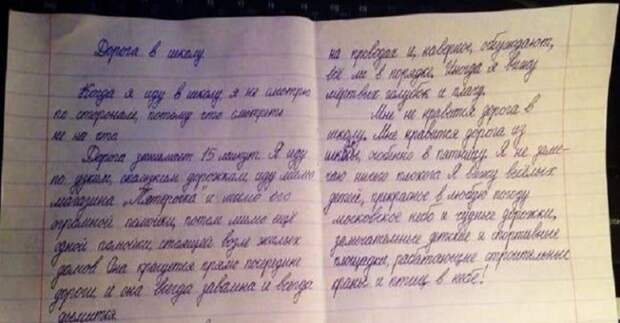 Дорога в школу
Когда я иду в школу, я не смотрю
по сторонам, потому что смотреть
не на что.
Дорога занимает 15 минут. Я иду
по узким, скользким дорожкам, иду мимо
магазина "Пятёрочка" и мимо его
огромной помойки, потом мимо ещё
одной помойки, стоящей возле жилых
домов. Она крошится прямо посередине
дороги и она всегда завалена и всегда
дымится
на проводах и, наверное, обсуждают,
всё ли в порядке. Иногда я вижу
мёртвых голубей и плачу.
Мне не нравится дорога в
школу. Мне нравится дорога из
школы, особенно в пятницу. Я не заме-
чаю ничего плохого. Я вижу весёлых
детей, прикрасное в любую погоду
московское небо и чудные дорожки,
замечательные детские и спортивные
площадки, работающие строительные
краны и птиц в небе!